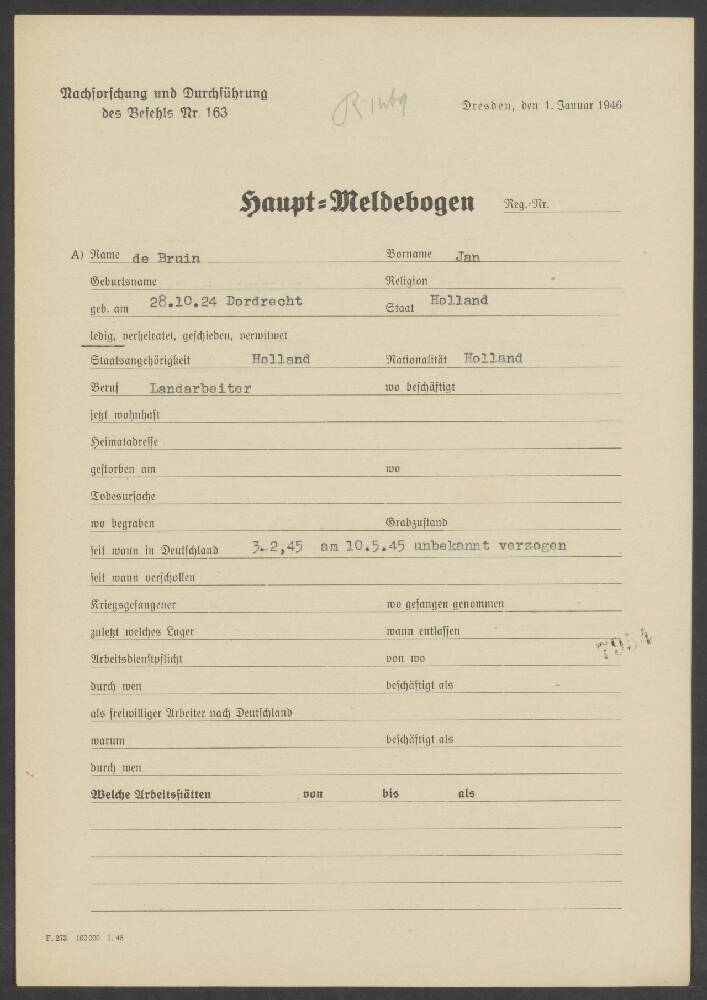 Nachforschung und Durchführung
des Befehls Nr. 163
Dresden, den 1. Januar 1946
Haupt=Meldebogen Reg.-Nr.
A) Name de Bruin Vorname Jan
Geburtsname Religion
geb. am 28.10.24 Dordrecht Staat Holland
ledig, verheiratet, geschieden, verwitwet
Staatsangehörigkeit Holland Nationalität Holland
Beruf Landarbeiter wo beschäftigt
jetzt wohnhaft
Heimatadresse
gestorben am wo
Todesursache
wo begraben Grabzustand
seit wann in Deutschland 3.2,45 am 10.5.45 unbekannt verzogen
seit wann verschollen
Kriegsgefangener wo gefangen genommen
zuletzt welches Lager wann entlassen
7954
Arbeitsdienstpflicht von wo
durch wen beschäftigt als
als freiwilliger Arbeiter nach Deutschland
warum beschäftigt als
durch wen
Welche Arbeitsstätten von bis als
F. 273 100000 1. 46